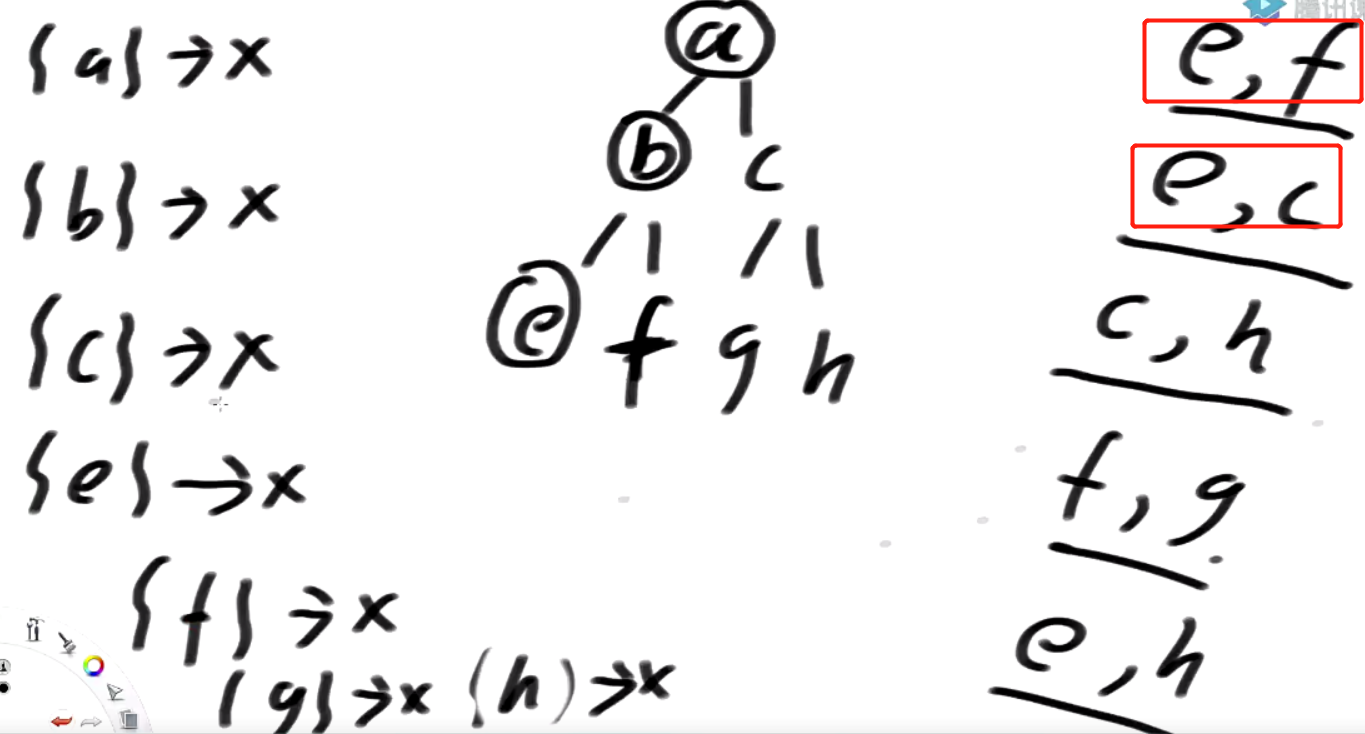 {a}→x
{b}→x
{c}→x
{e}→x
{f}→x
{g}→x (h)→x
a
b c
e f g h
e,f
e,c
c,h
f,g
e,h